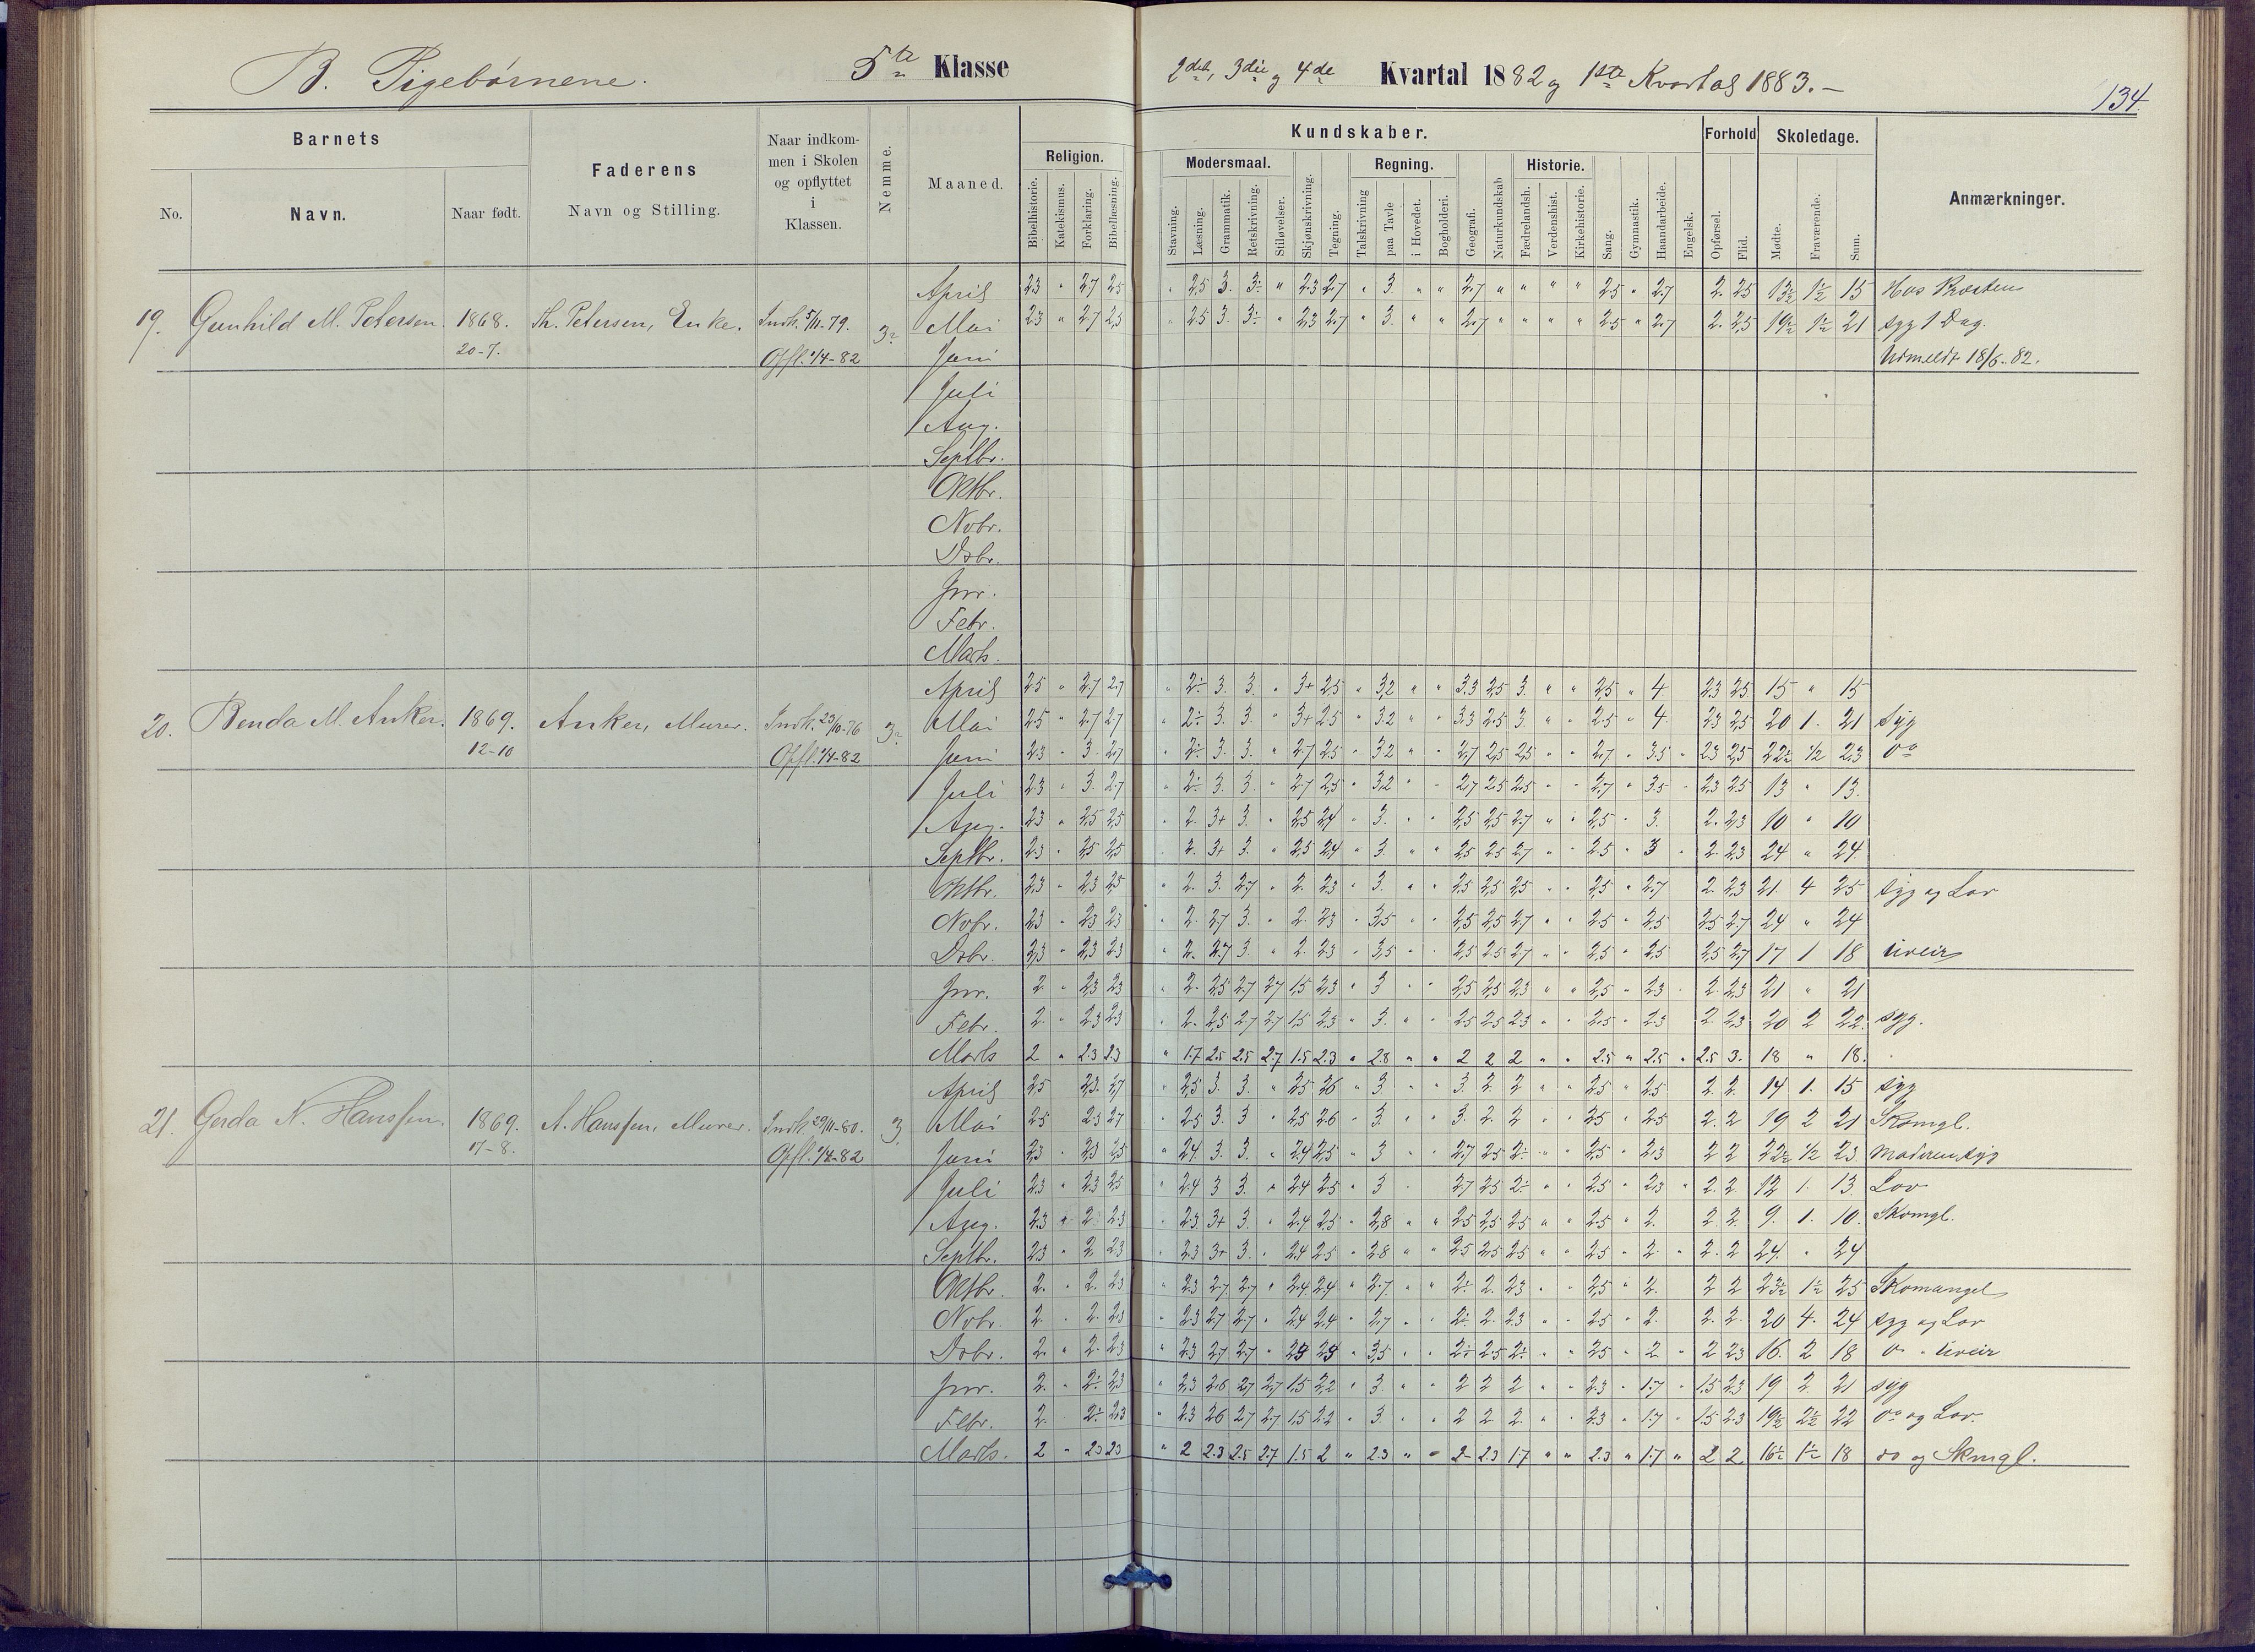 B. Pigebørnene. 5te Klasse 2det, 3die og 4de Kvartal 1882 og 1ste Kvartal 1883.- 134.
Barnets
No.
Navn.
Naar født.
Faderens
Navn og Stilling.
Naar indkom-
men i Skolen
og opflyttet
i
Klassen.
Nemme.
Maaned.
Kundskaber.
Religion.
Bibelhistorie. Katekismus. Forklaring. Bibellæsning.
Modersmaal.
Stavning. Læsning. Grammatik. Retskrivning. Stiløvelser. Skjønskrivning. Tegning.
Regning.
Talskrivning paa Tavle i Hovedet. Bogholderi. Geografi. Naturkundskab
Historie.
Fædrelandsh. Verdenshist. Kirkehistorie. Sang. Gymnastik. Haandarbeide. Engelsk.
Forhold
Opførsel. Flid.
Skoledage.
Mødte. Fraværende. Sum.
Anmærkninger.
April 2,3 " 2,7 2,5 " 2,5 3. 3÷ " 2,3 2,7 " 3 " " 2,7 " " " " 2,5 " 2,7 2. 2,5 13½ 1½ 15 Hos Præsten
19. Gunhild M. Petersen. 1868. Th. Petersen, Enke. Indk. 5/11-79. Mai 2,3 " 2,7 2,5 " 2,5 3. 3÷ " 2,3 2,7 " 3. " " 2,7 " " " " 2,5 " 2,7 2. 2,5 19½ 1½ 21 syg 1 Dag.
20-7. Opfl. 1/4-82 Juni Udmeldt 18/6.82.
Juli
Aug.
Septbr.
Oktbr.
Novbr.
Dcbr.
Jnr.
Febr.
Marts.
April 2,5 " 2,7 2,7 " 2÷ 3. 3. " 3+ 2,5 " 3,2 " " 3,3 2,5 3. " " 2,5 " 4 2,3 2,5 15 " 15
20. Benda M. Anker. 1869. Anker, Murer. Indk. 23/10-76 Mai 2,5 " 2,7 2,7 " 2÷ 3. 3. " 3+ 2,5 " 3,2 " " 3,3 2,5 3 " " 2,5 " 4. 2,3 2,5 20 1. 21 syg
12-10 Opfl. 1/4-82 Juni 2,3 " 3 2,7 " 2÷ 3. 3. " 2,7 2,5 " 3,2 " " 2,7 2,5 2,5 " " 2,7 " 3,5 " 2,3 2,5 22½ ½ 23 do
Juli 2,3 " 3. 2,7 " 2÷ 3. 3. " 2,7 2,5 " 3,2 " " 2,7 2,5 2,5 " " 2,7 " 3,5 " 2,3 2,5 13 " 13.
Aug. 2,3 " 2,5 2,5 " 2. 3+ 3. " 2,5 2,4 " 3. " " 2,5 2,5 2,7 " " 2,5 " 3. 2. 2,3 10 " 10
Septbr. 2,3 " 2,5 2,5 " 2. 3+ 3. " 2,5 2,4 " 3. " " 2,5 2,5 2,7 " " 2,5 " 3 " 2. 2,3 24 " 24.
Oktbr. 2,3 " 2,3 2,5 " 2. 3. 2,7 " 2. 2,3 " 3. " " 2,5 2,5 2,5 " " 2,5 " 2,7 2. 2,3 21 4 25 syg og Lov
Novbr. 2,3 " 2,3 2,3 " 2. 2,7 3. " 2. 2,3 " 3,5 " " 2,5 2,5 2,7 " " 2,5 " 2,5 2,5 2,7 24 " 24
Dcbr. 2,3 " 2,3 2,3 " 2. 2,7 3. " 2. 2,3 " 3,5 " " 2,5 2,5 2,7 " " 2,5 " 2,5 2,5 2,7 17 1 18 Uveir
Jnr. 2. " 2,3 2,3 " 2. 2,5 2,7 2,7 1,5 2,3 " 3 " " 2,5 2,5 2,3 " " 2,5 " 2,3 " 2. 2,3 21 " 21
Febr. 2. " 2,3 2,3 " 2. 2,5 2,7 2,7 1,5 2,3 " 3. " " 2,5 2,5 2,3 " " 2,5 " 2,3 2. 2,3 20 2 22. syg.
Marts 2 " 2.3 2.3 " 1.7 2.5 2.5 2.7 1.5 2.3 " 2.8 " " 2 2 2 " " 2.5 " 2.5 " 2.5 3. 18 " 18.
April 2,5 2,3. 2,7 " 2,5 3. 3. " 2,5 2,6 " 3 " " 3. 2. 2 " " 2,5 " 2,5 2. 2. 14 1. 15 syg
21. Gerda N. Hanssen. 1869. A. Hanssen, Murer. Indk 29/11-80. 3. Mai 2,5 2,3 2,7 " 2,5 3. 3 " 2,5 2,6 " 3. " " 3. 2. 2 " " 2,5 " 2,5 2. 2 19 2 21 Skomgl.
17-8. Opfl. 1/4-82 Juni 2,3 " 2,3 2,5 " 2,4 3. 3. " 2,4 2,5 " 3 " " 2,7 2,5 2÷ " " 2,5 " 2,3 2 2 22½ ½ 23 Moderen syg
Juli 2,3 " 2,3 2,5 " 2,4 3 3. " 2,4 2,5 " 3 2,7 2,5 2÷ " " 2,5 " 2,3 " 2. 2. 12 1. 13 Lov
Aug. 2,3 " 2 2,3 " 2,3 3+ 3. " 2,4 2,5 " 2,8 " " 2,5 2,5 2,5 " " 2,5 " 2. 2 2. 9. 1. 10. Skomgl.
Septbr. 2,3 " 2 2,3 " 2,3 3+ 3. " 2,4 2,5 " 2,8 " " 2,5 2,5 2,5 " " 2,5 " 2. " 2. 2 24. " 24
Oktbr. 2. " 2. 2,3 " 2,3 2,7 2,7 " 2,4 2,4 " 2,7. " " 2÷ 2. 2,3 " " 2,5 " 2. 2 2 23½ 1½ 25 Skomangel
Novbr. 2. " 2. 2,3 " 2,3 2,7 2,7 " 2,4 2,4 " 2,7 " " 2÷ 2. 2,3 " " 2,5 " 2. 2. 2. 20 4. 24 syg og Lov
Dcbr. 2. " 2. 2,3 " 2,3 2,7 2,7 " " 3,5 " " 2÷ 2,5 2÷ " " 2,5 " 2. " 2 2,3 16. 2 18 Uveir
Jnr. 2. " 2÷ 2,3 " 2,3 2,6 2,7 2,7 1,5 2,2 " 3. " " 2 2 2 " " 2,3 " 1,7 " 1,5 2,3 19 2. 21 syg
Febr. 2. 2÷ 2,3 " 2,3 2,6 2,7 2,7 1,5 2,2 " 3. " " 2 2 2. " " 2,3 " 1,7 " 1,5 2,3 19½ 2½ 22 do og Lov.
Marts. 2 " 2.3 2.3 " 2 2.3 2.5 2.7 1.5 2 " 2.3 " " 2 2.3 1.7 " " 2.3 " 1.7 " 2 2 16½ 1½ 18 do og Skmgl.